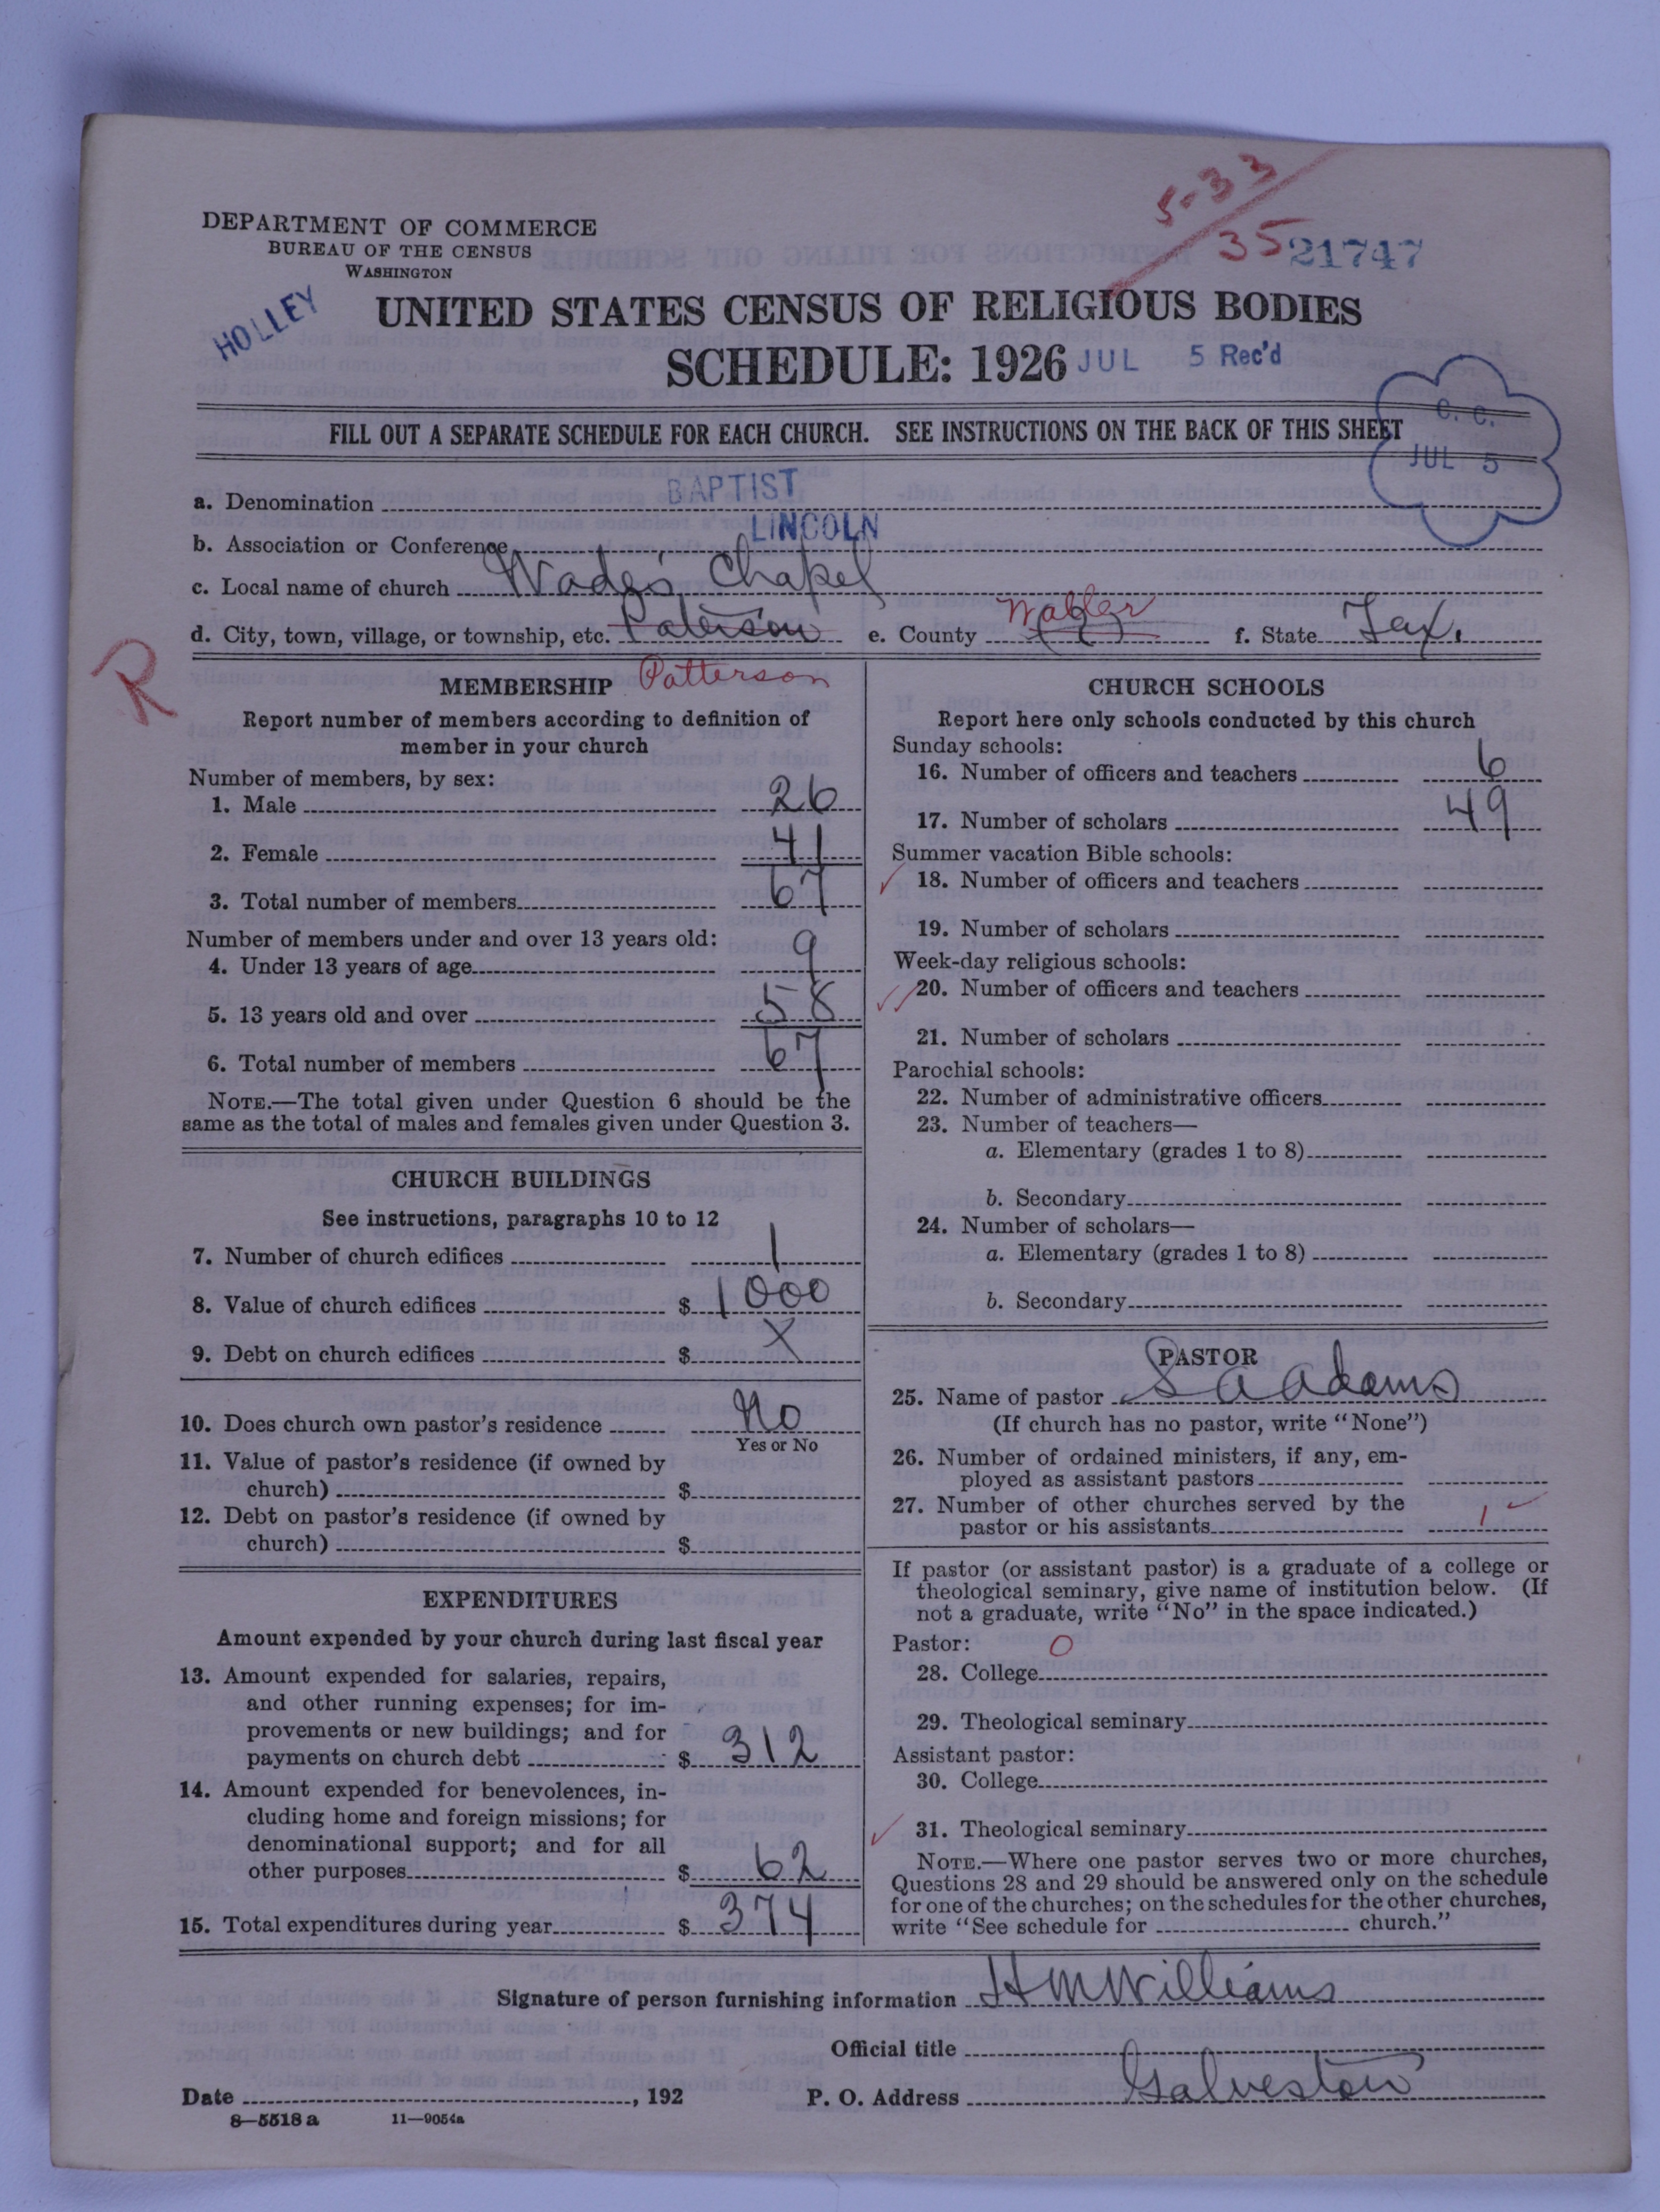 5-33
35 21747
DEPARTMENT OF COMMERCE
BUREAU OF THE CENSUS
WASHINGTON
HOLLEY
UNITED STATES CENSUS OF RELIGIOUS BODIES
SCHEDULE: 1926 JUL 5 Rec'd
FILL OUT A SEPARATE SCHEDULE FOR EACH CHURCH. SEE INSTRUCTIONS ON THE BACK OF THIS SHEET
C. C.
JUL 5
a. Denomination BAPTIST
b. Association or Conference LINCOLN
c. Local name of church Wade's Chapel
d. City, town, village, or township, etc. Paterson e. County Waller f. State Tex.
R
MEMBERSHIP Patterson
Report number of members according to definition of
member in your church
Number of members, by sex:
1. Male 26
2. Female 41
3. Total number of members 67
Number of members under and over 13 years old:
4. Under 13 years of age 9
5. 13 years old and over 58
6. Total number of members 67
NOTE.—The total given under Question 6 should be the
same as the total of males and females given under Question 3.
CHURCH BUILDINGS
See instructions, paragraphs 10 to 12
7. Number of church edifices 1
8. Value of church edifices $ 1000
9. Debt on church edifices $ X
10. Does church own pastor's residence No
Yes or No
11. Value of pastor's residence (if owned by
church) $
12. Debt on pastor's residence (if owned by
church) $
EXPENDITURES
Amount expended by your church during last fiscal year
13. Amount expended for salaries, repairs,
and other running expenses; for im-
provements or new buildings; and for
payments on church debt $ 312
14. Amount expended for benevolences, in-
cluding home and foreign missions; for
denominational support; and for all
other purposes $ 62
15. Total expenditures during year $ 374
CHURCH SCHOOLS
Report here only schools conducted by this church
Sunday schools:
16. Number of officers and teachers 6
17. Number of scholars 49
Summer vacation Bible schools:
18. Number of officers and teachers
19. Number of scholars
Week-day religious schools:
20. Number of officers and teachers
21. Number of scholars
Parochial schools:
22. Number of administrative officers
23. Number of teachers—
a. Elementary (grades 1 to 8)
b. Secondary
24. Number of scholars—
a. Elementary (grades 1 to 8)
b. Secondary
PASTOR
25. Name of pastor S A Adams
(If church has no pastor, write "None")
26. Number of ordained ministers, if any, em-
ployed as assistant pastors
27. Number of other churches served by the
pastor or his assistants 1
If pastor (or assistant pastor) is a graduate of a college or
theological seminary, give name of institution below. (If
not a graduate, write "No" in the space indicated.)
Pastor: O
28. College
29. Theological seminary
Assistant pastor:
30. College
31. Theological seminary
NOTE.—Where one pastor serves two or more churches,
Questions 28 and 29 should be answered only on the schedule
for one of the churches; on the schedules for the other churches,
write "See schedule for church."
Signature of person furnishing information H M Williams
Official title
Date , 192 P. O. Address Galveston
8—5518 a 11—9054a